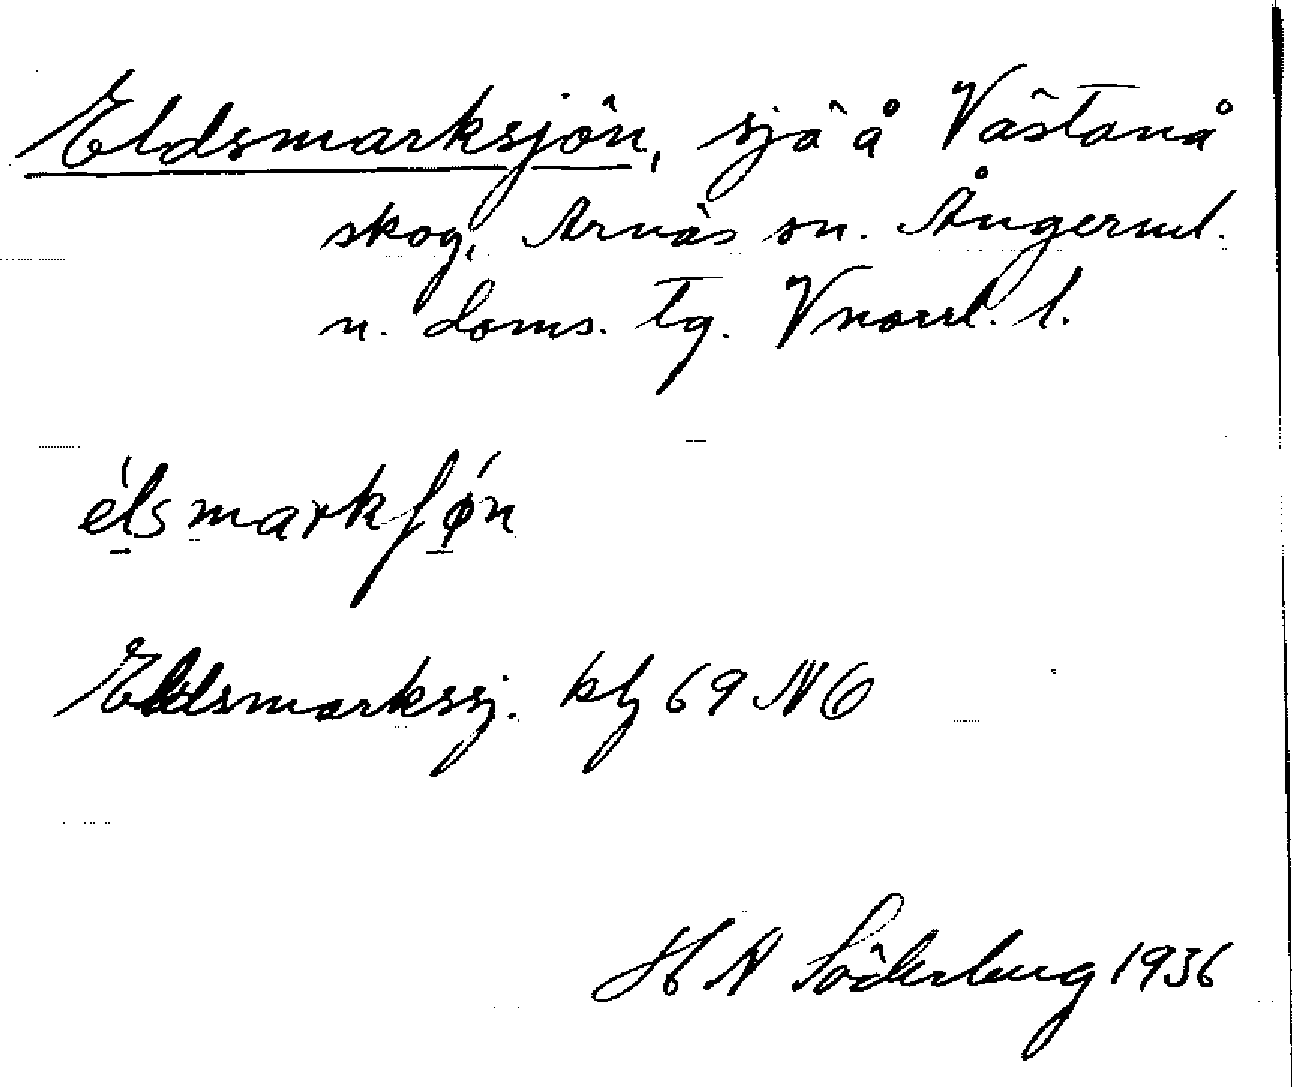 Eldsmarksjön, sjö å Västanå
skog, Arnäs sn. Ångerml.
n. doms. tg. Vnorrl. l.
élsmarkʃǿn
Eldsmarkssj. kbl 69 NO
H N Söderberg 1936